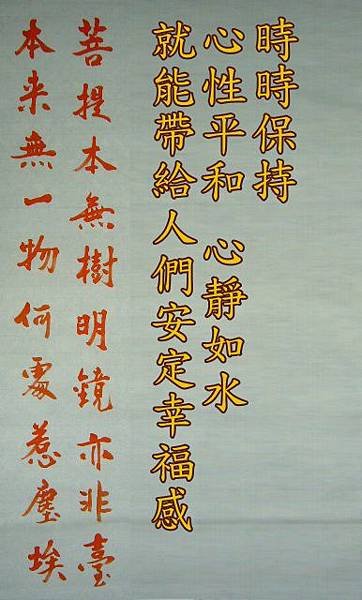 時時保持
心性平和 心靜如水
就能帶給人們安定幸福感
菩提本無樹明鏡亦非臺
本来無一物何處惹塵埃